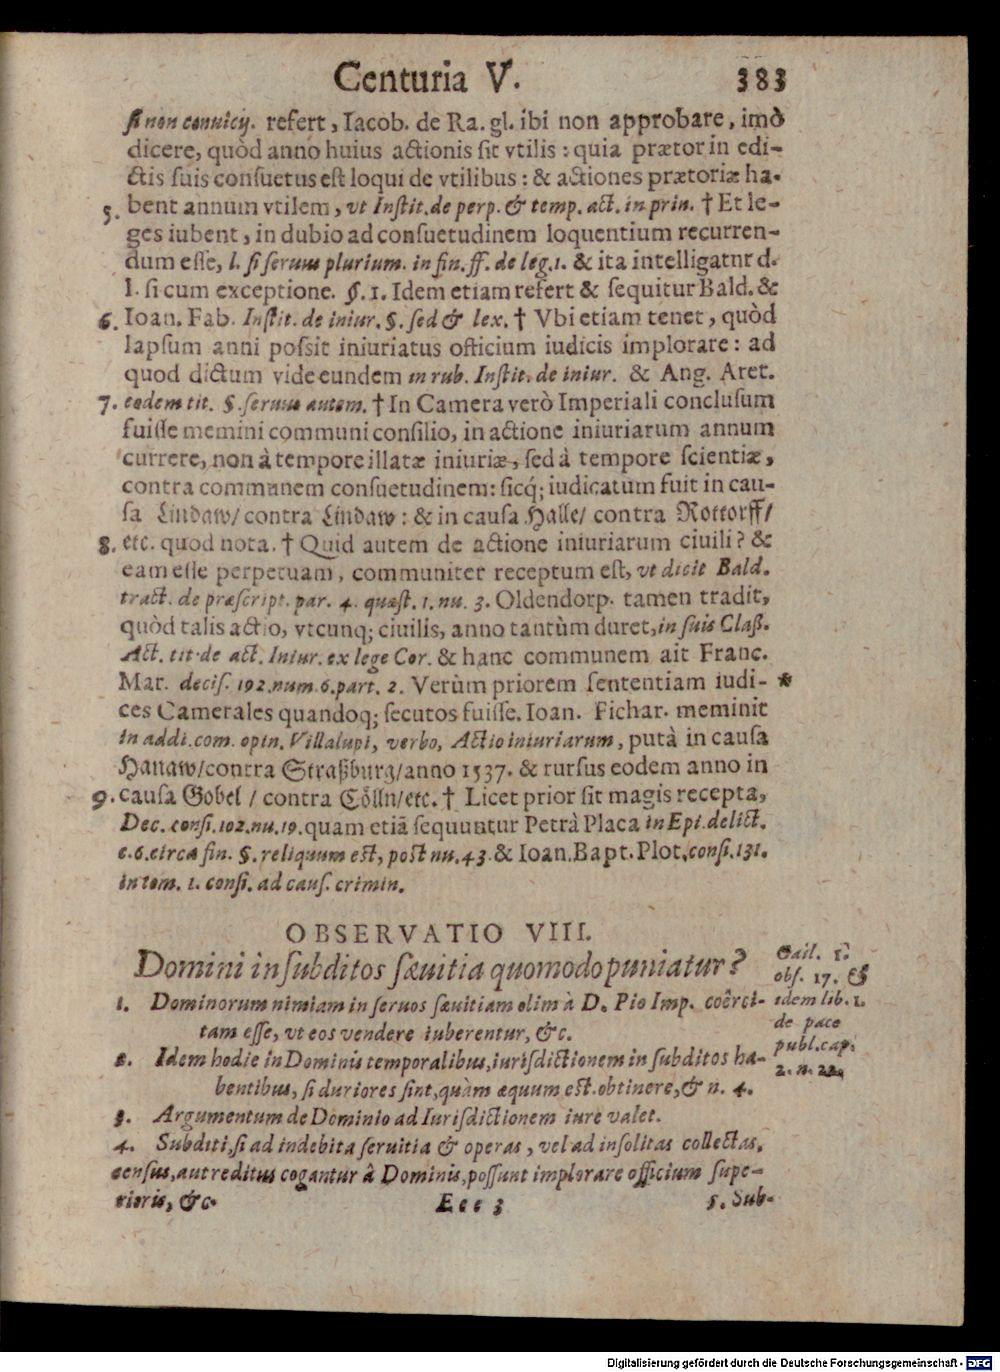 Centuria V. 383
si non conuicij. refert, Iacob. de Ra. gl. ibi non approbare, imò
dicere, quòd anno huius actionis sit vtilis: quia prætor in edi-
ctis suis consuetus est loqui de vtilibus: & actiones prætoriæ ha-
5. bent annum vtilem, vt Instit. de perp. & temp. act. in prin. † Et le-
ges iubent, in dubio ad consuetudinem loquentium recurren-
dum esse, l. si seruus plurium. in fin. ff. de leg. 1. & ita intelligatnr d.
l. si cum exceptione. §. 1. Idem etiam refert & sequitur Bald. &
6. Ioan. Fab. Instit. de iniur. §. sed & lex. † Vbi etiam tenet, quòd
lapsum anni possit iniuriatus officium iudicis implorare: ad
quod dictum vide eundem in rub. Instit. de iniur. & Ang. Aret.
7. eodem tit. §. seruus autem. † In Camera verò Imperiali conclusum
fuisse memini communi consilio, in actione iniuriarum annum
currere, non à tempore illatæ iniuriæ, sed à tempore scientiæ,
contra communem consuetudinem: sicq; iudicatum fuit in cau-
sa Lindaw/ contra Lindaw: & in causa Halle/ contra Rottorff/
8. etc. quod nota. † Quid autem de actione iniuriarum ciuili? &
eam esse perpetuam, communiter receptum est, vt dicit Bald.
tract. de præscript. par. 4. quæst. 1. nu. 3. Oldendorp. tamen tradit,
quòd talis actio, vtcunq; ciuilis, anno tantùm duret, in suis Claß.
Act. tit. de act. Iniur. ex lege Cor. & hanc communem ait Franc.
Mar. decis. 192. num. 6. part. 2. Verùm priorem sententiam iudi- *
ces Camerales quandoq; secutos fuisse. Ioan. Fichar. meminit
in addi. com. opin. Villalupi, verbo, Actio iniuriarum, putà in causa
Hanaw/ contra Straßburg/ anno 1537. & rursus eodem anno in
9. causa Gobel / contra Cölln/ etc. † Licet prior sit magis recepta,
Dec. consi. 102. nu. 19. quam etiã sequuntur Petrà Placa in Epi. delict.
c. 6. circa fin. §. reliquum est, post nu. 43. & Ioan. Bapt. Plot. consi. 131.
in tom. 1. consi. ad caus. crimin.
OBSERVATIO VIII.
Domini in subditos sæuitia quomodo puniatur?
1. Dominorum nimiam in seruos sæuitiam olim à D. Pio Imp. coêrci-
tam esse, vt eos vendere iuberentur, &c.
2. Idem hodie in Dominis temporalibus, iurisdictionem in subditos ha-
bentibus, si duriores sint, quàm æquum est. obtinere, & n. 4.
3. Argumentum de Dominio ad Iurisdictionem iure valet.
4. Subditi, si ad indebita seruitia & operas, vel ad insolitas collectas,
census, aut reditus cogantur â Dominis, possunt implorare officium supe-
rioris, &c.
Eee 3 5. Sub-
Gail. 1.
obs. 17. &
idem lib. 1.
de pace
publ. cap.
2. n. 22.
Digitalisierung gefördert durch die Deutsche Forschungsgemeinschaft - DFG